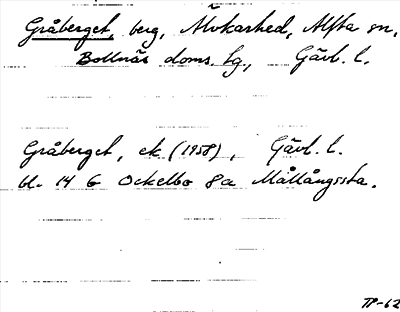 Gråberget, berg, Älvkarhed, Alfta sn,
Bollnäs doms. tg, Gävl. l.
Gråberget, ek (1958), Gävl. l.
bl. 14 G Ockelbo 8a Mållångssta.
TP-62